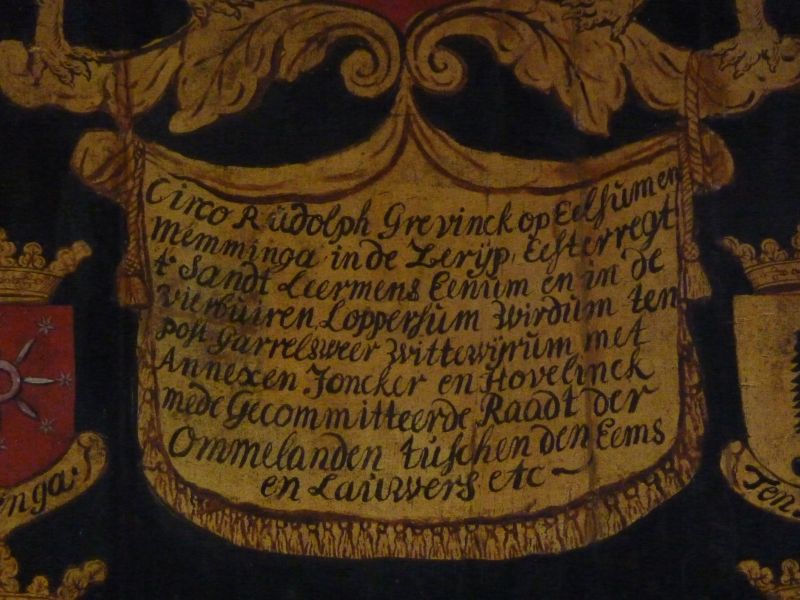 Circo Rudolph Grevinck op Eelsumen
Memminga in de Zerijp, Eesterregt
't Sandt Leermens Eenum en in de
vierbuiren Loppersum Wirdum ten
post Garrelsweer Wittewijrum met
Annexen Joncker en Hovelinck
mede Gecommitteerde Raadt der
Ommelanden tuschen den Eems
en Lauwers etc
inga
Ten